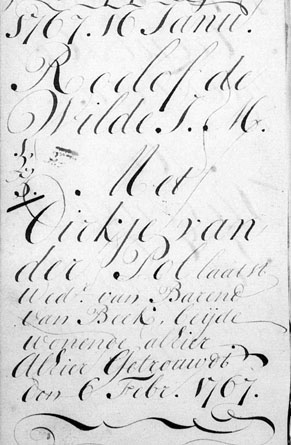 1767. 16 Janu.
Roelof de
Wilde J. M.
Met
Dirkje van
der Pol laatst
Wedr. van Barend
van Beek, beijde
wonende alhier
Alhier Getrouwdt
den 6 Febr. 1767.